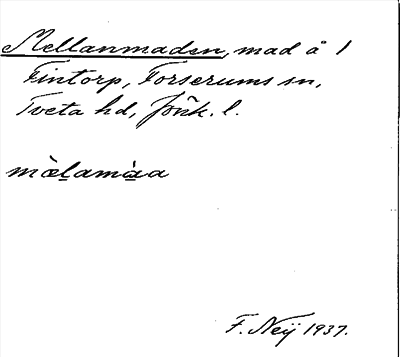 Mellanmaden, mad å 1
Fintorp, Forserums sn,
Tveta hd, Jönk. l.
mæ̀lamàa
F. Neij 1937.